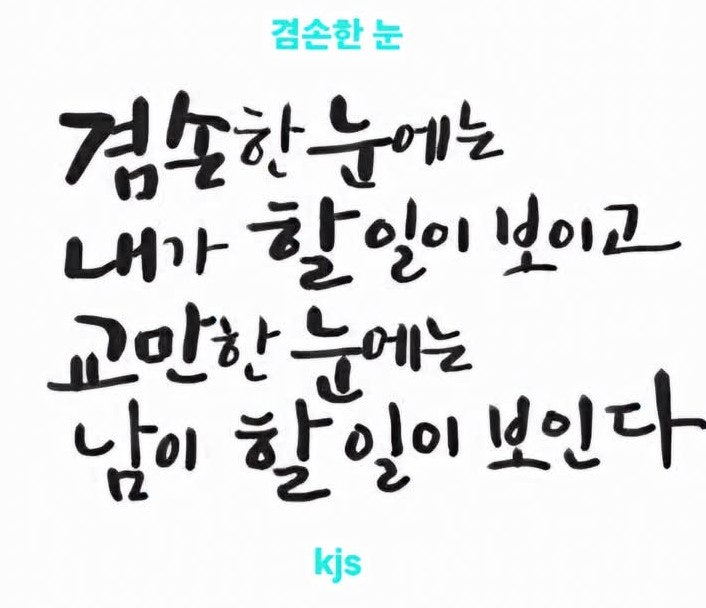 겸손한 눈
겸손한 눈에는
내가 할 일이 보이고
교만한 눈에는
남이 할 일이 보인다
kjs